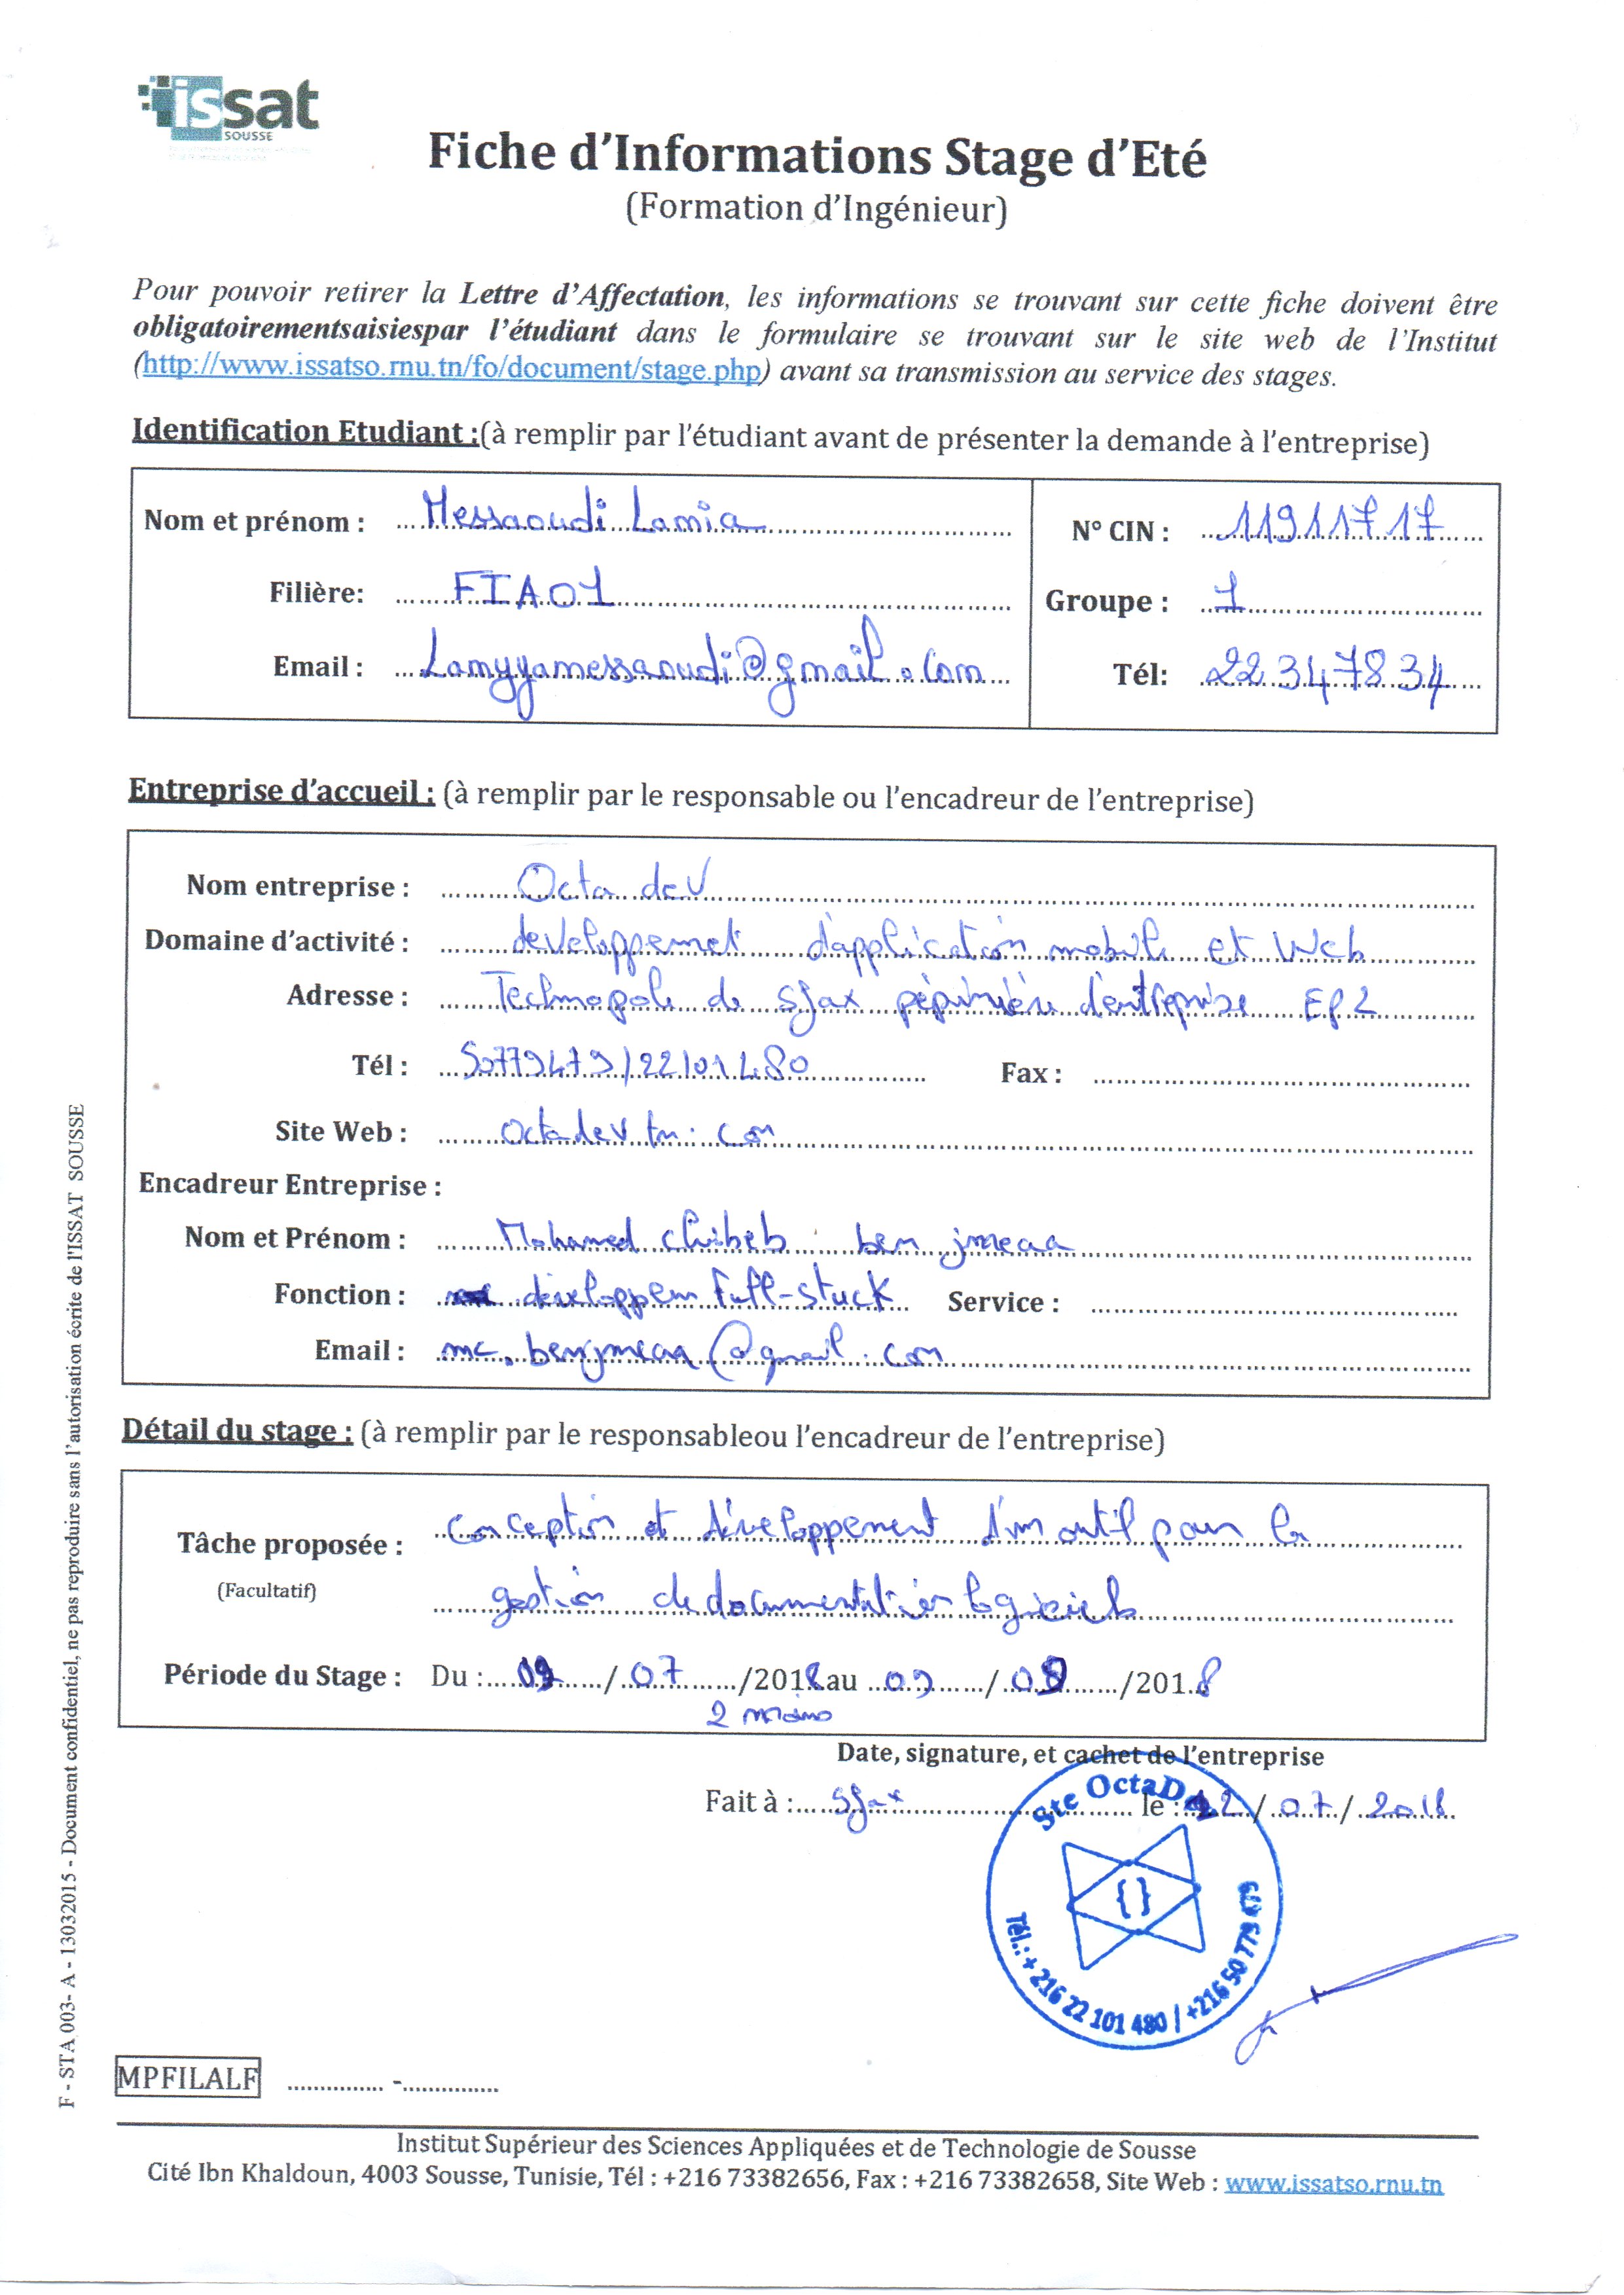 issat
SOUSSE
Fiche d'Informations Stage d'Eté
(Formation d'Ingénieur)
Pour pouvoir retirer la Lettre d'Affectation, les informations se trouvant sur cette fiche doivent être
obligatoirementsaisiespar l'étudiant dans le formulaire se trouvant sur le site web de l'Institut
(http://www.issatso.rnu.tn/fo/document/stage.php) avant sa transmission au service des stages.
Identification Etudiant :(à remplir par l'étudiant avant de présenter la demande à l'entreprise)
Nom et prénom : Messaoudi Lamia N° CIN : 11911717
Filière: FIA01 Groupe : 1
Email : Lamyyamessaoudi@gmail.com Tél: 22347834
Entreprise d'accueil : (à remplir par le responsable ou l'encadreur de l'entreprise)
Nom entreprise : Octa dev
Domaine d'activité : developpemet d'application mobile et Web
Adresse : Technopole de sfax pépinière d'entreprise EP2
Tél : 50779479/22101480 Fax :
Site Web : octadev tn. com
Encadreur Entreprise :
Nom et Prénom : Mohamed chibeb ben jmeaa
Fonction : developpem Full-stuck Service :
Email : mc.benjmeaa@gmail.com
Détail du stage : (à remplir par le responsableou l'encadreur de l'entreprise)
Tâche proposée : Conception et développement d'un outil pour la
(Facultatif) gestion de documentation logiciels
Période du Stage : Du : 09/07/2018 au 09/09/2018
2 mois
Date, signature, et cachet de l'entreprise
Fait à : sfax le : 12/07/2018
Ste OctaDev
{ }
Tél.: + 216 22 101 480 / +216 50 779 479
MPFILALF -
Institut Supérieur des Sciences Appliquées et de Technologie de Sousse
Cité Ibn Khaldoun, 4003 Sousse, Tunisie, Tél : +216 73382656, Fax : +216 73382658, Site Web : www.issatso.rnu.tn
F - STA 003- A - 13032015 - Document confidentiel, ne pas reproduire sans l'autorisation écrite de l'ISSAT SOUSSE